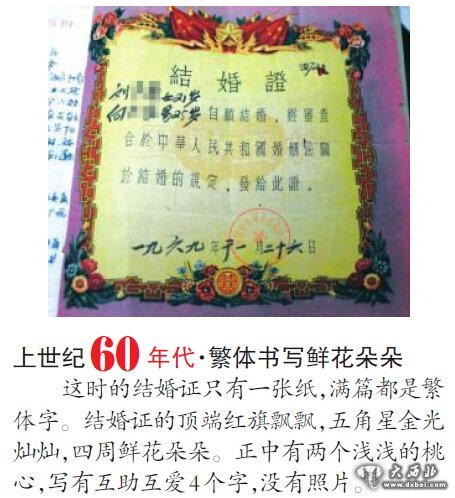 結婚證
刘 女21岁
向 男25岁自願結婚，經審查
合於中華人民共和國婚姻法關
於結婚的規定，發給此證。
一九六九年十一月二十六日
上世纪60年代·繁体书写鲜花朵朵
这时的结婚证只有一张纸，满篇都是繁
体字。结婚证的顶端红旗飘飘，五角星金光
灿灿，四周鲜花朵朵。正中有两个浅浅的桃
心，写有互助互爱4个字，没有照片。
大西北
www.dxbei.com